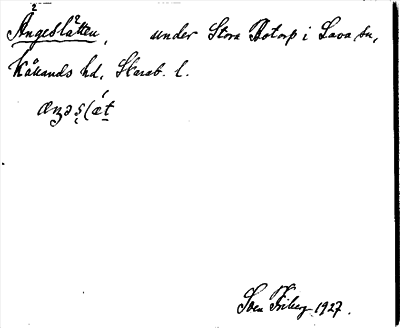 Ängeslätten, under Stora Botorp i Lava sn,
Kållands hd, Skarab. l.
æŋəṣlæ̀t
Sven Friberg 1927.